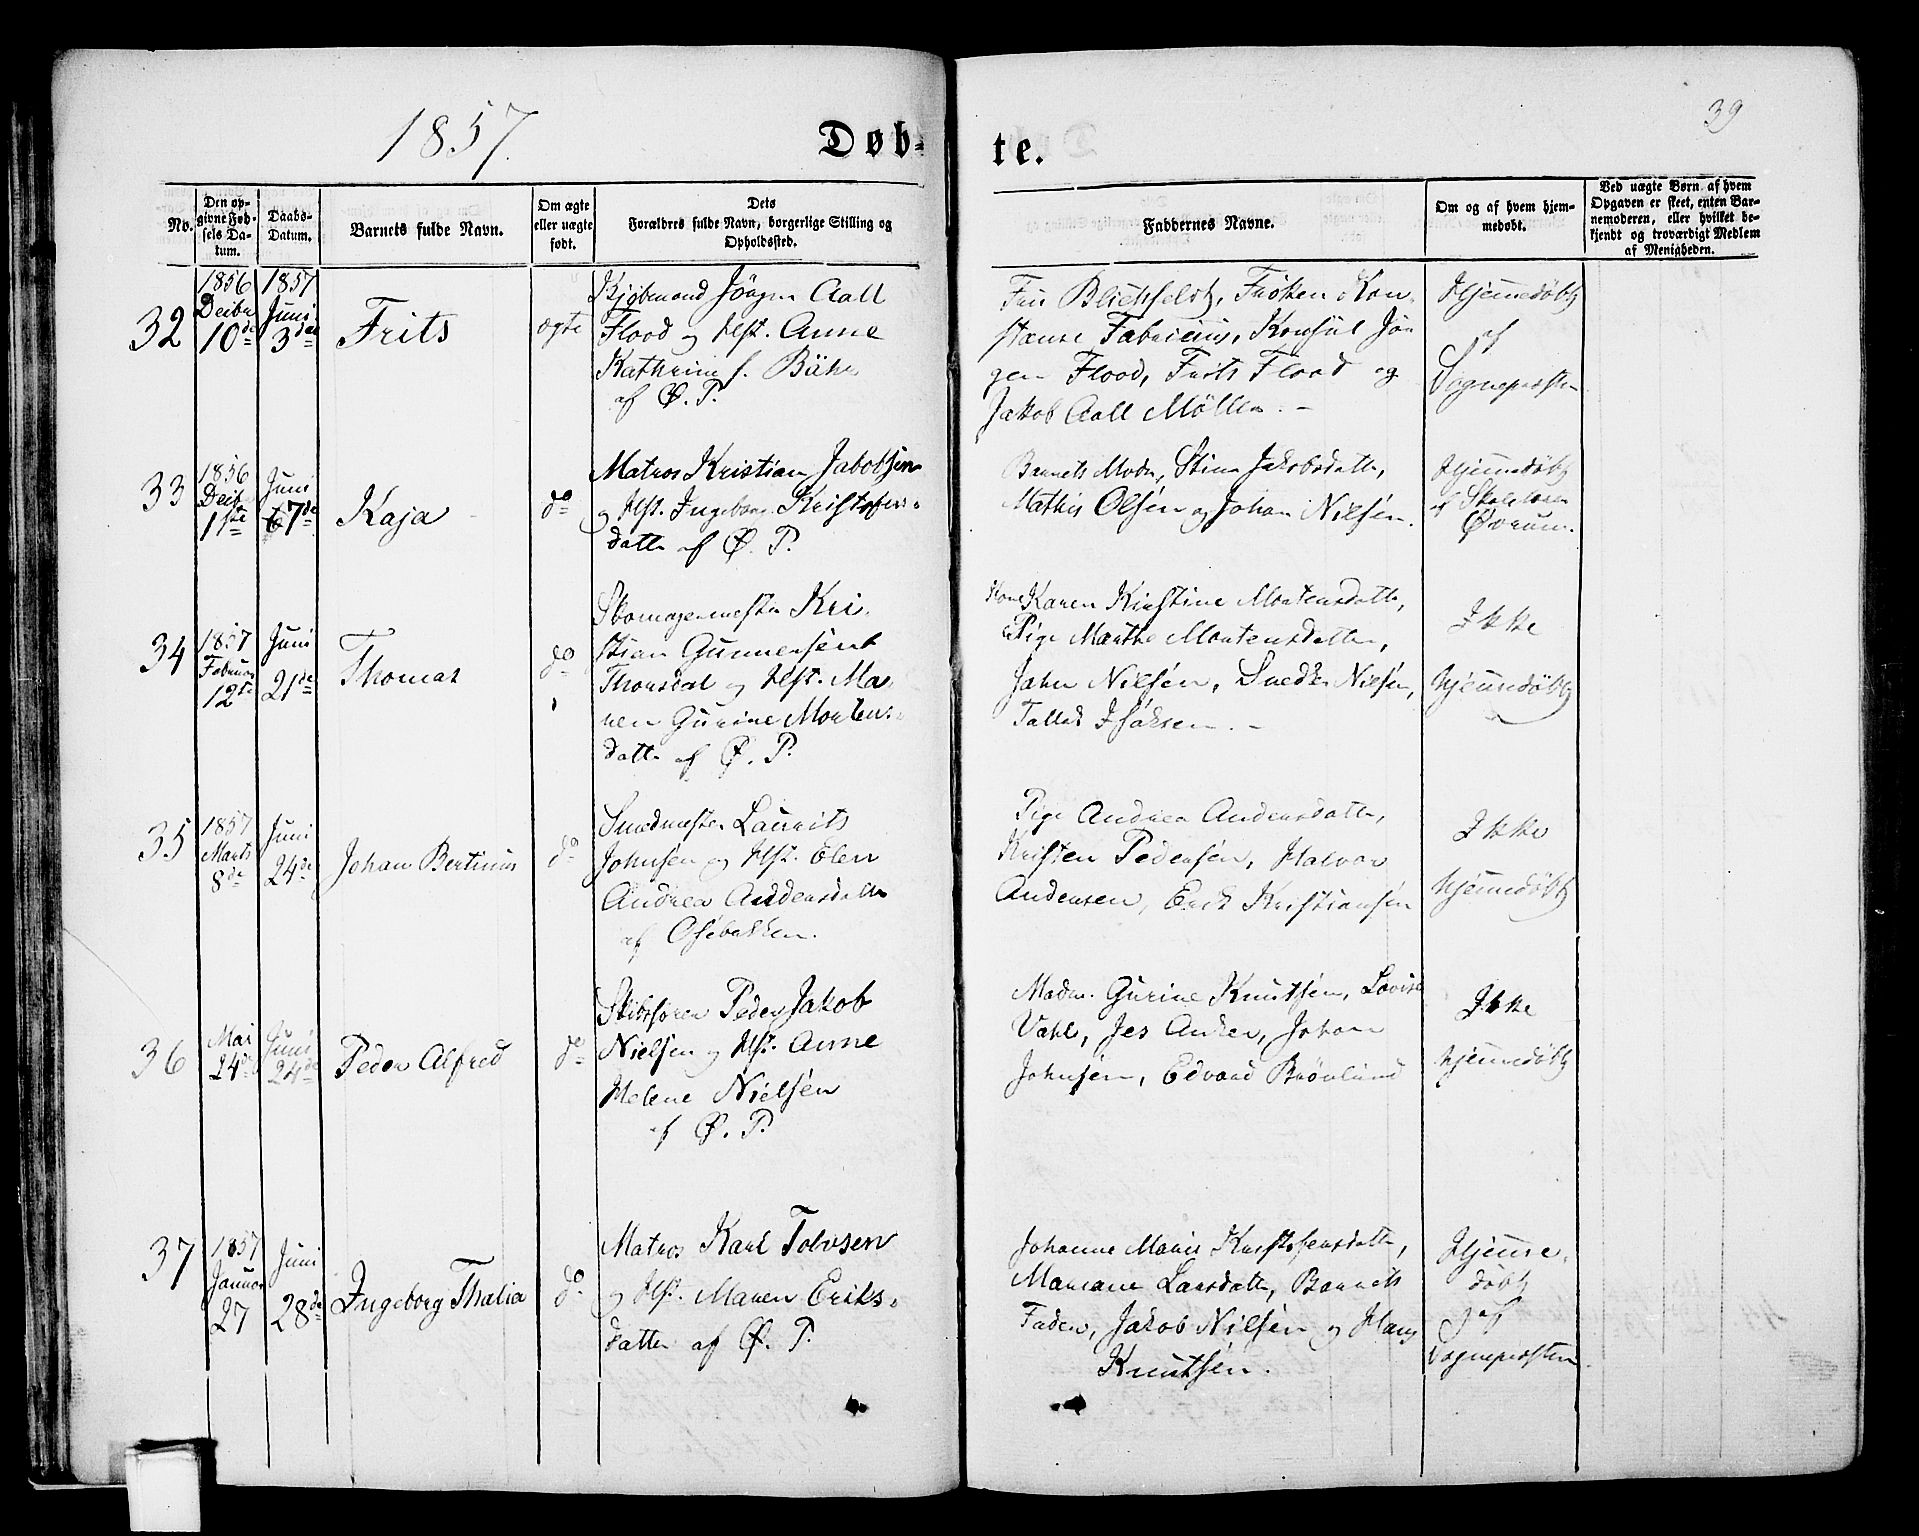 39
1857.
Døb-
te.
No.
Den op-
givne Fød-
sels Da-
tum.
Daabs-
Datum.
Barnets fulde Navn.
Om ægte
eller uægte
født.
Dets
Forældres fulde Navn, borgerlige Stilling og
Opholdssted.
Faddernes Navne.
Om og af hvem hjem-
medøbt.
Ved uægte Børn af hvem
Opgaven er skeet, enten Bar-
nemoderen, eller hvilket be-
kjendt og troværdigt Medlem
af Menigheden.
32
1856
Decbr
10de
1857
Juni
3die
Frits
ægte
Kjøbmand Jørgen Aall
Flood og Hst. Anne
Kathrine f.
af Ø. P.
Fru Blichfeldt, Frøken Kon-
stanse Fabricius, Konsul Jør
gen Flood, Frits Flood og
Jakob Aall Møller. -
Hjemmedøbt
af
Sognepresten
33
1856
Decb
1ste
Juni
7de
Kaja
do
Matros Kristian Jakobsen
og Hst. Ingeborg Kristofers-
datter af Ø. P.
Barnets Moder, Stine Jakobsdatter,
Mathis Olsen og Johan Nielsen.
Hjemmedøbt
af Skolelærer
Øvrum.
34
1857
Februar
12te
Juni
21de
Thomas
do
Skomagermester Kri-
stian Gunnersen
og Hst. Ma-
ren Gurine Mortens-
datter af Ø. P.
Kone Karen Kirstine Mortensdatter,
Pige Marthe Mortensdatter,
John Nilsén, Snedker Nilsén,
Tallak Isaksen. -
Ikke
hjemmedøbt
35
1857
Marts
8de
Juni
24de
Johan Bertinus
do
Smedmester Laurits
Johnsen og Hst. Elen
Andrea Anddersdatter
af Osebakken.
Pige Andrea Andersdatter,
Kristen Pedersén, Halvor
Andersen, Erik Kristiansén
Ikke
hjemmedøbt
36
Mai
24de
Juni
24de
Peder Alfred
do
Skibsfører Peder Jakob
Nielsen og Hst. Anne
Helene Nielsén
af Ø. P.
Madm. Gurine Knutsén, Lovise
Vahl, Jes Anker, Johan
Johnsén, Edvard Brövlund
Ikke
hjemmedøbt
37
1857
Januar
27
Juni
28de
Ingeborg Thalia
do
Matros Karl Tolvsen
og Hst. Maren Eriks-
datter af Ø. P.
Johanne Marie Kristofersdatter,
Mariane Larsdatter, Barnets
Fader, Jakob Nielsén og Hans
Knutsén.
Hjemme-
døbt
af
Sognepresten